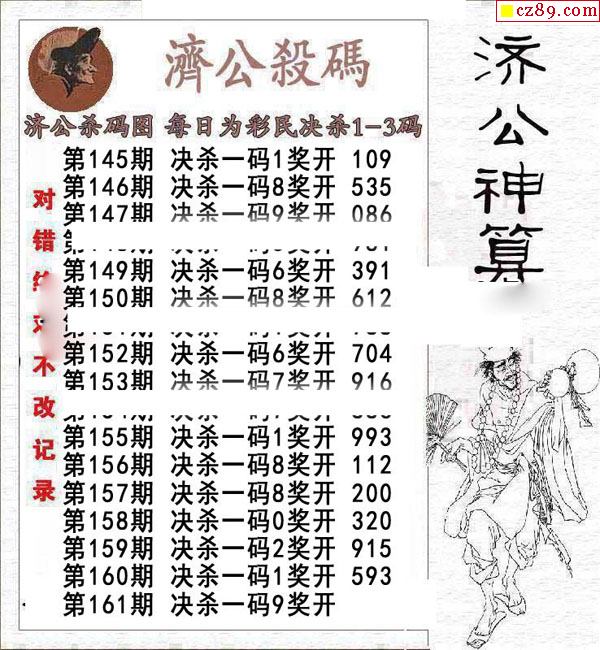 cz89.com
濟公殺碼
济公杀码图 每日为彩民决杀1-3码
第145期 决杀一码1奖开 109
第146期 决杀一码8奖开 535
第147期 决杀一码9奖开 086
第149期 决杀一码6奖开 391
第150期 决杀一码8奖开 612
第152期 决杀一码6奖开 704
第153期 决杀一码7奖开 916
第155期 决杀一码1奖开 993
第156期 决杀一码8奖开 112
第157期 决杀一码8奖开 200
第158期 决杀一码0奖开 320
第159期 决杀一码2奖开 915
第160期 决杀一码1奖开 593
第161期 决杀一码9奖开
对错
不改记录
济公神算